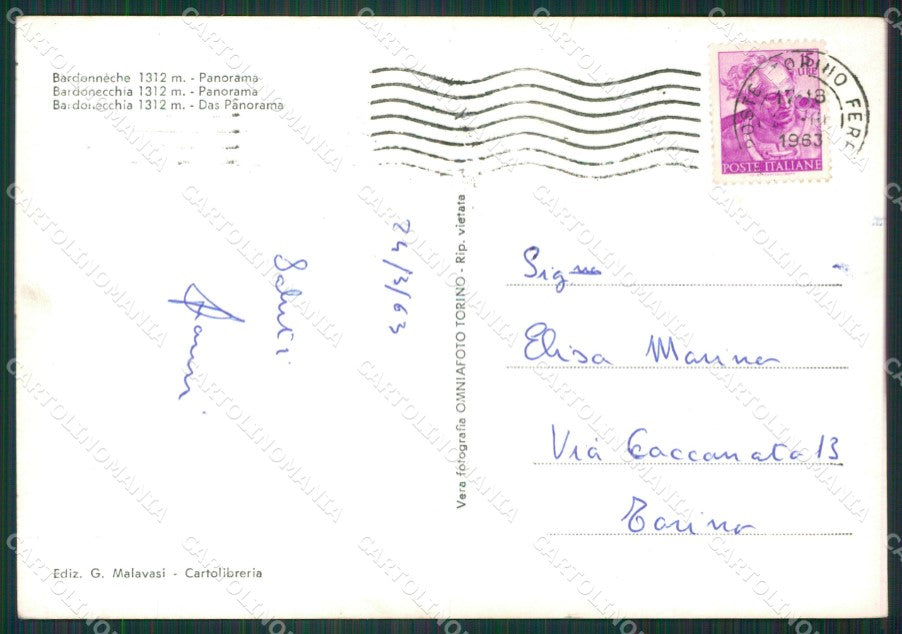 Bardonnèche 1312 m. - Panorama
Bardonecchia 1312 m. - Panorama
Bardonecchia 1312 m. - Das Panorama
POSTE TORINO FERR
17-18
1963
LIRE
POSTE ITALIANE
24/3/63
Saluti
Vera fotografia OMNIAFOTO TORINO - Rip. vietata
Sig
Elisa Marino
Via 13
Torino
Ediz. G. Malavasi - Cartolibreria
CARTOLINOMANIA